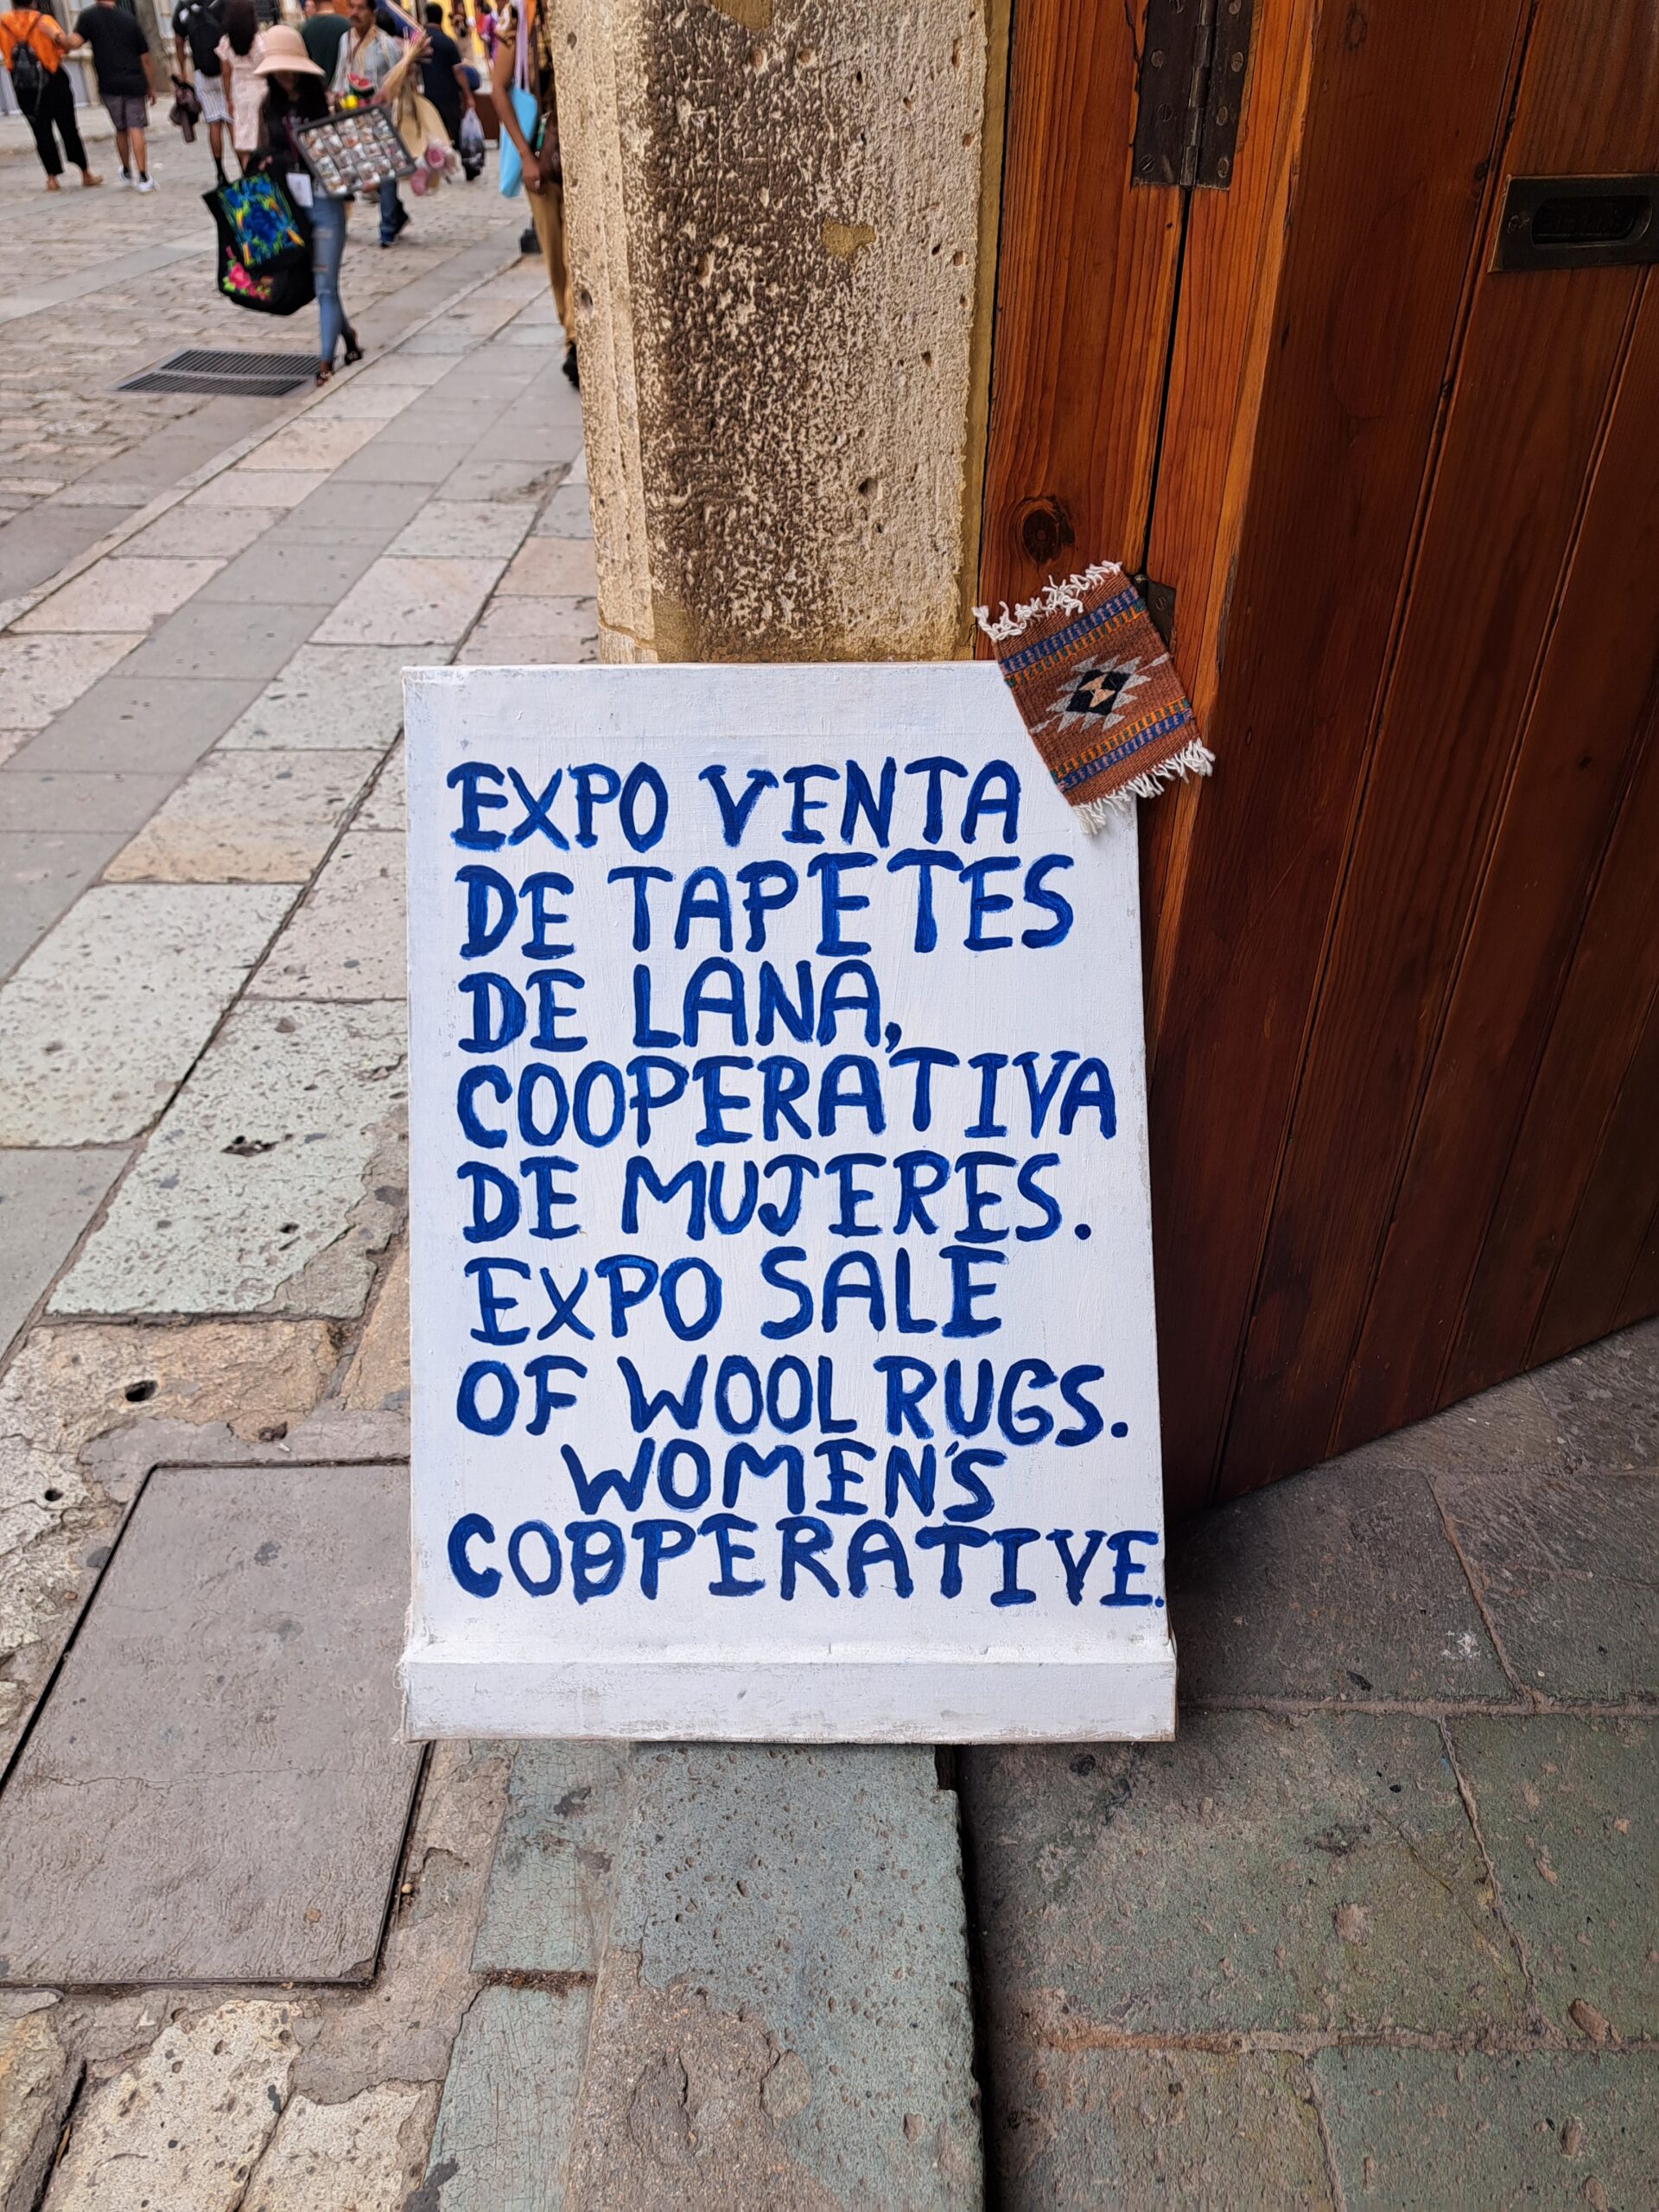 EXPO VENTA
DE TAPETES
DE LANA,
COOPERATIVA
DE MUJERES.
EXPO SALE
OF WOOL RUGS.
WOMEN'S
COOPERATIVE.